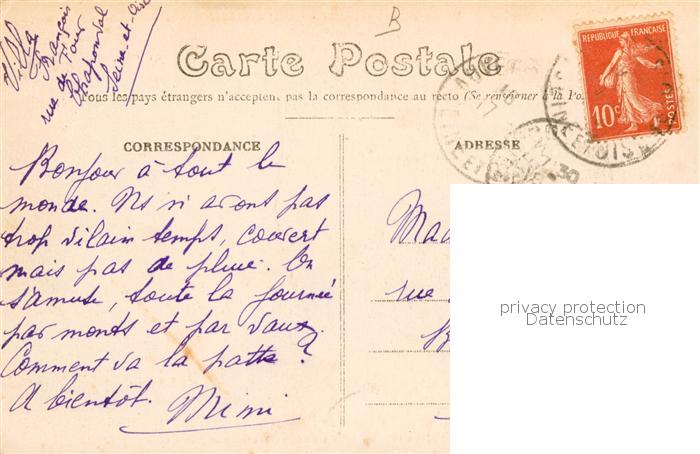 Villa
François
rue du Four
Chaponval
Seine-et-Oise
B
Carte Postale
Tous les pays étrangers n'acceptent pas la correspondance au recto (Se renseigner à la Po
REPUBLIQUE FRANÇAISE
10c
POSTES
CORRESPONDANCE
ADRESSE
Bonjour à tout le
monde. Ns n'avons pas
trop vilain temps, couvert
mais pas de pluie. On
s'amuse, toute la journée
par monts et par vaux.
Comment va la patte?
A bientôt. Mimi
Mad
rue
privacy protection
Datenschutz